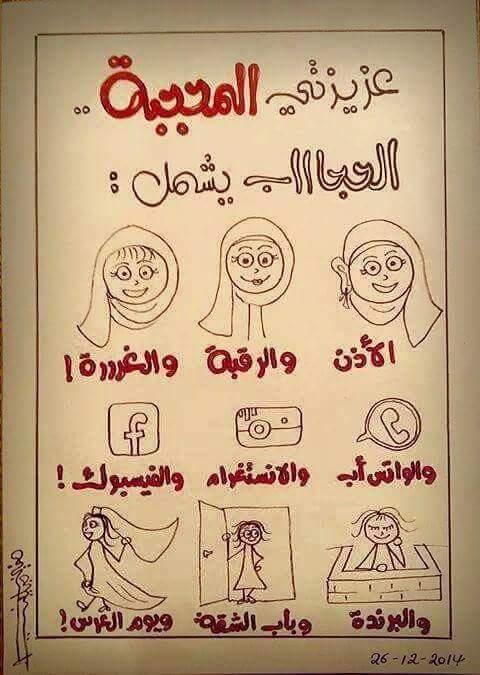 عزيزتي المحجبة ..
الحجااااب يشمل :
الأذن والرقبة والغرررة !
والواتس أب والانستغرام والفيسبوك !
والبرندة وباب الشقة ويوم العرس !
26-12-2014